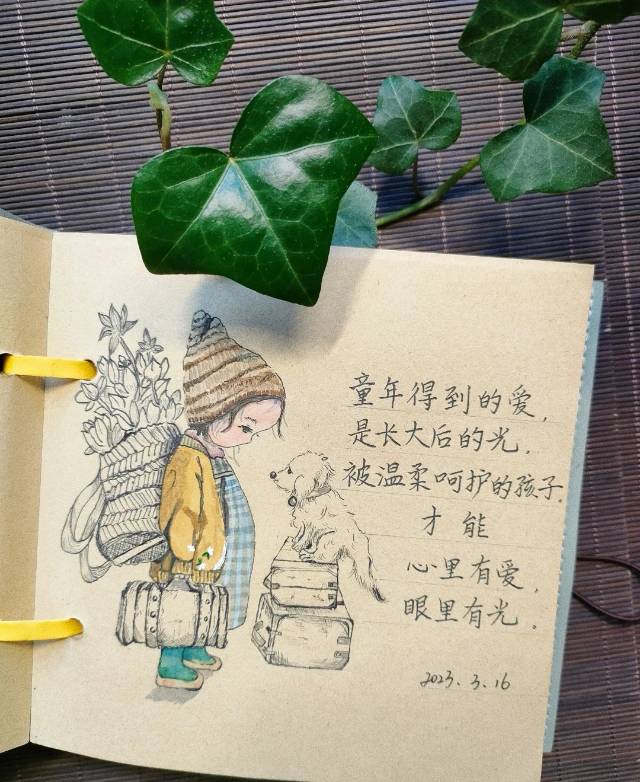 童年得到的爱，
是长大后的光．
被温柔呵护的孩子．
才能
心里有爱，
眼里有光．
2023.3.16